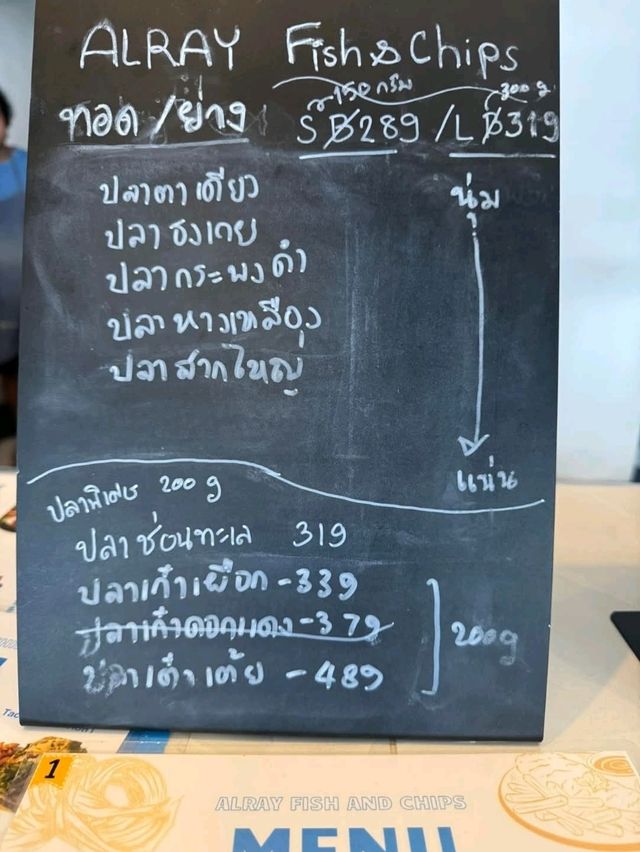 ALRAY Fish & Chips
150 กรัม 300 g
ทอด/ย่าง S ฿289 /L ฿319
ปลาตาเดียว นุ่ม
ปลาธงเทย
ปลากระพงดำ
ปลาหางเหลือง
ปลาสากใหญ่
แน่น
ปลาพิเศษ 200 g
ปลาช่อนทะเล 319
ปลาเก๋าเผือก -339
ปลาเก๋าดอกแดง -379
ปลาเต๋าเต้ย -489
200g
1
ALRAY FISH AND CHIPS
MENU